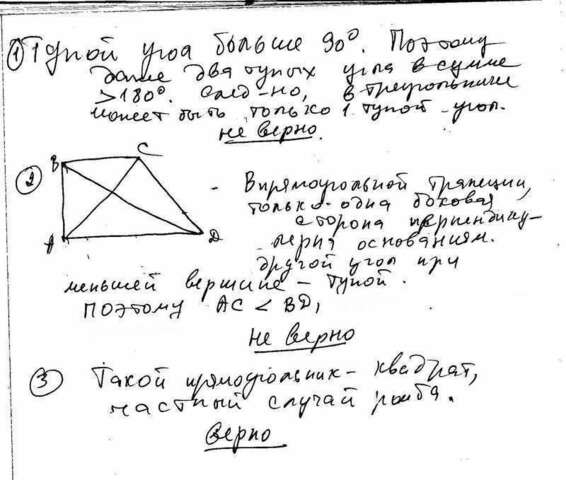 ① Тупой угол больше 90°. Поэтому
даже два тупых угла в сумме
>180°. След-но, в треугольнике
может быть только 1 тупой угол.
не верно.
B C
②
A D
- В прямоугольной трапеции,
только одна боковая
сторона перпендику-
лярна основаниям.
другой угол при
меньшей вершине - тупой.
Поэтому AC < BD,
Не верно
③ Такой прямоугольник - квадрат,
частный случай ромба.
верно